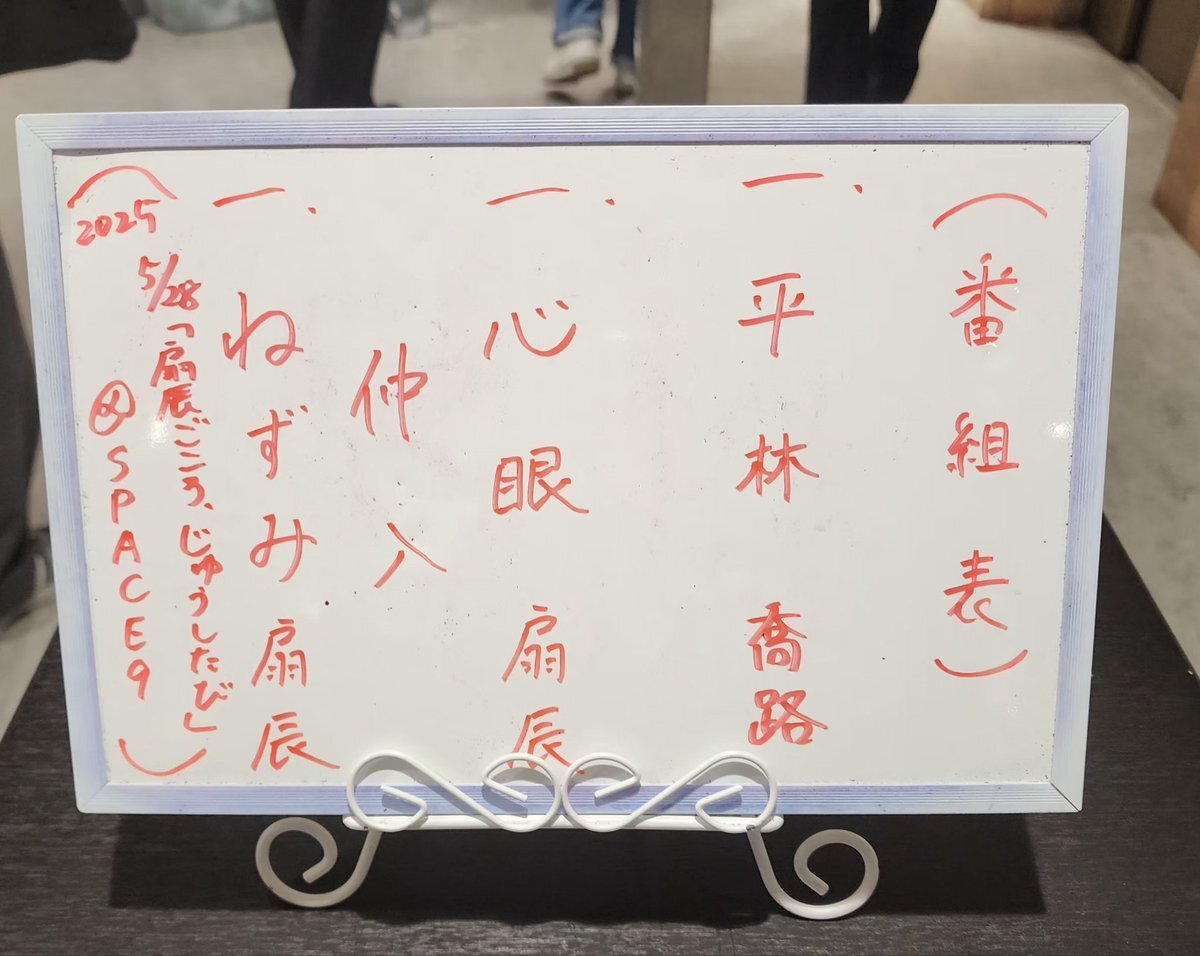 （番組表）
一、平林 喬路
一、心眼 扇辰
仲入
一、ねずみ 扇辰
（2025 5/28「扇辰ごこう、じゅうしたび」
SPACE9）